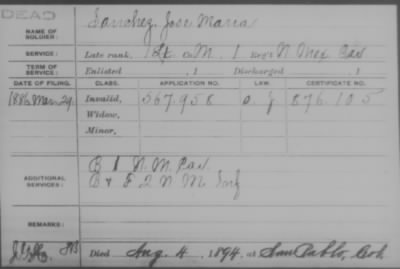 DEAD
NAME OF SOLDIER: Sanchez, Jose Maria
SERVICE: Late rank, Co. M, 1 Reg't N Mex Cav
TERM OF SERVICE: Enlisted , 1 Discharged , 1
DATE OF FILING. CLASS. APPLICATION NO. LAW. CERTIFICATE NO.
1886 Mar 29. Invalid, 567.958 876.105
Widow,
Minor,
ADDITIONAL SERVICES:
B 1 N. M. Cav
B & F 2 N M Inf
REMARKS:
Died Aug. 4, 1894, at San Pablo, Col.